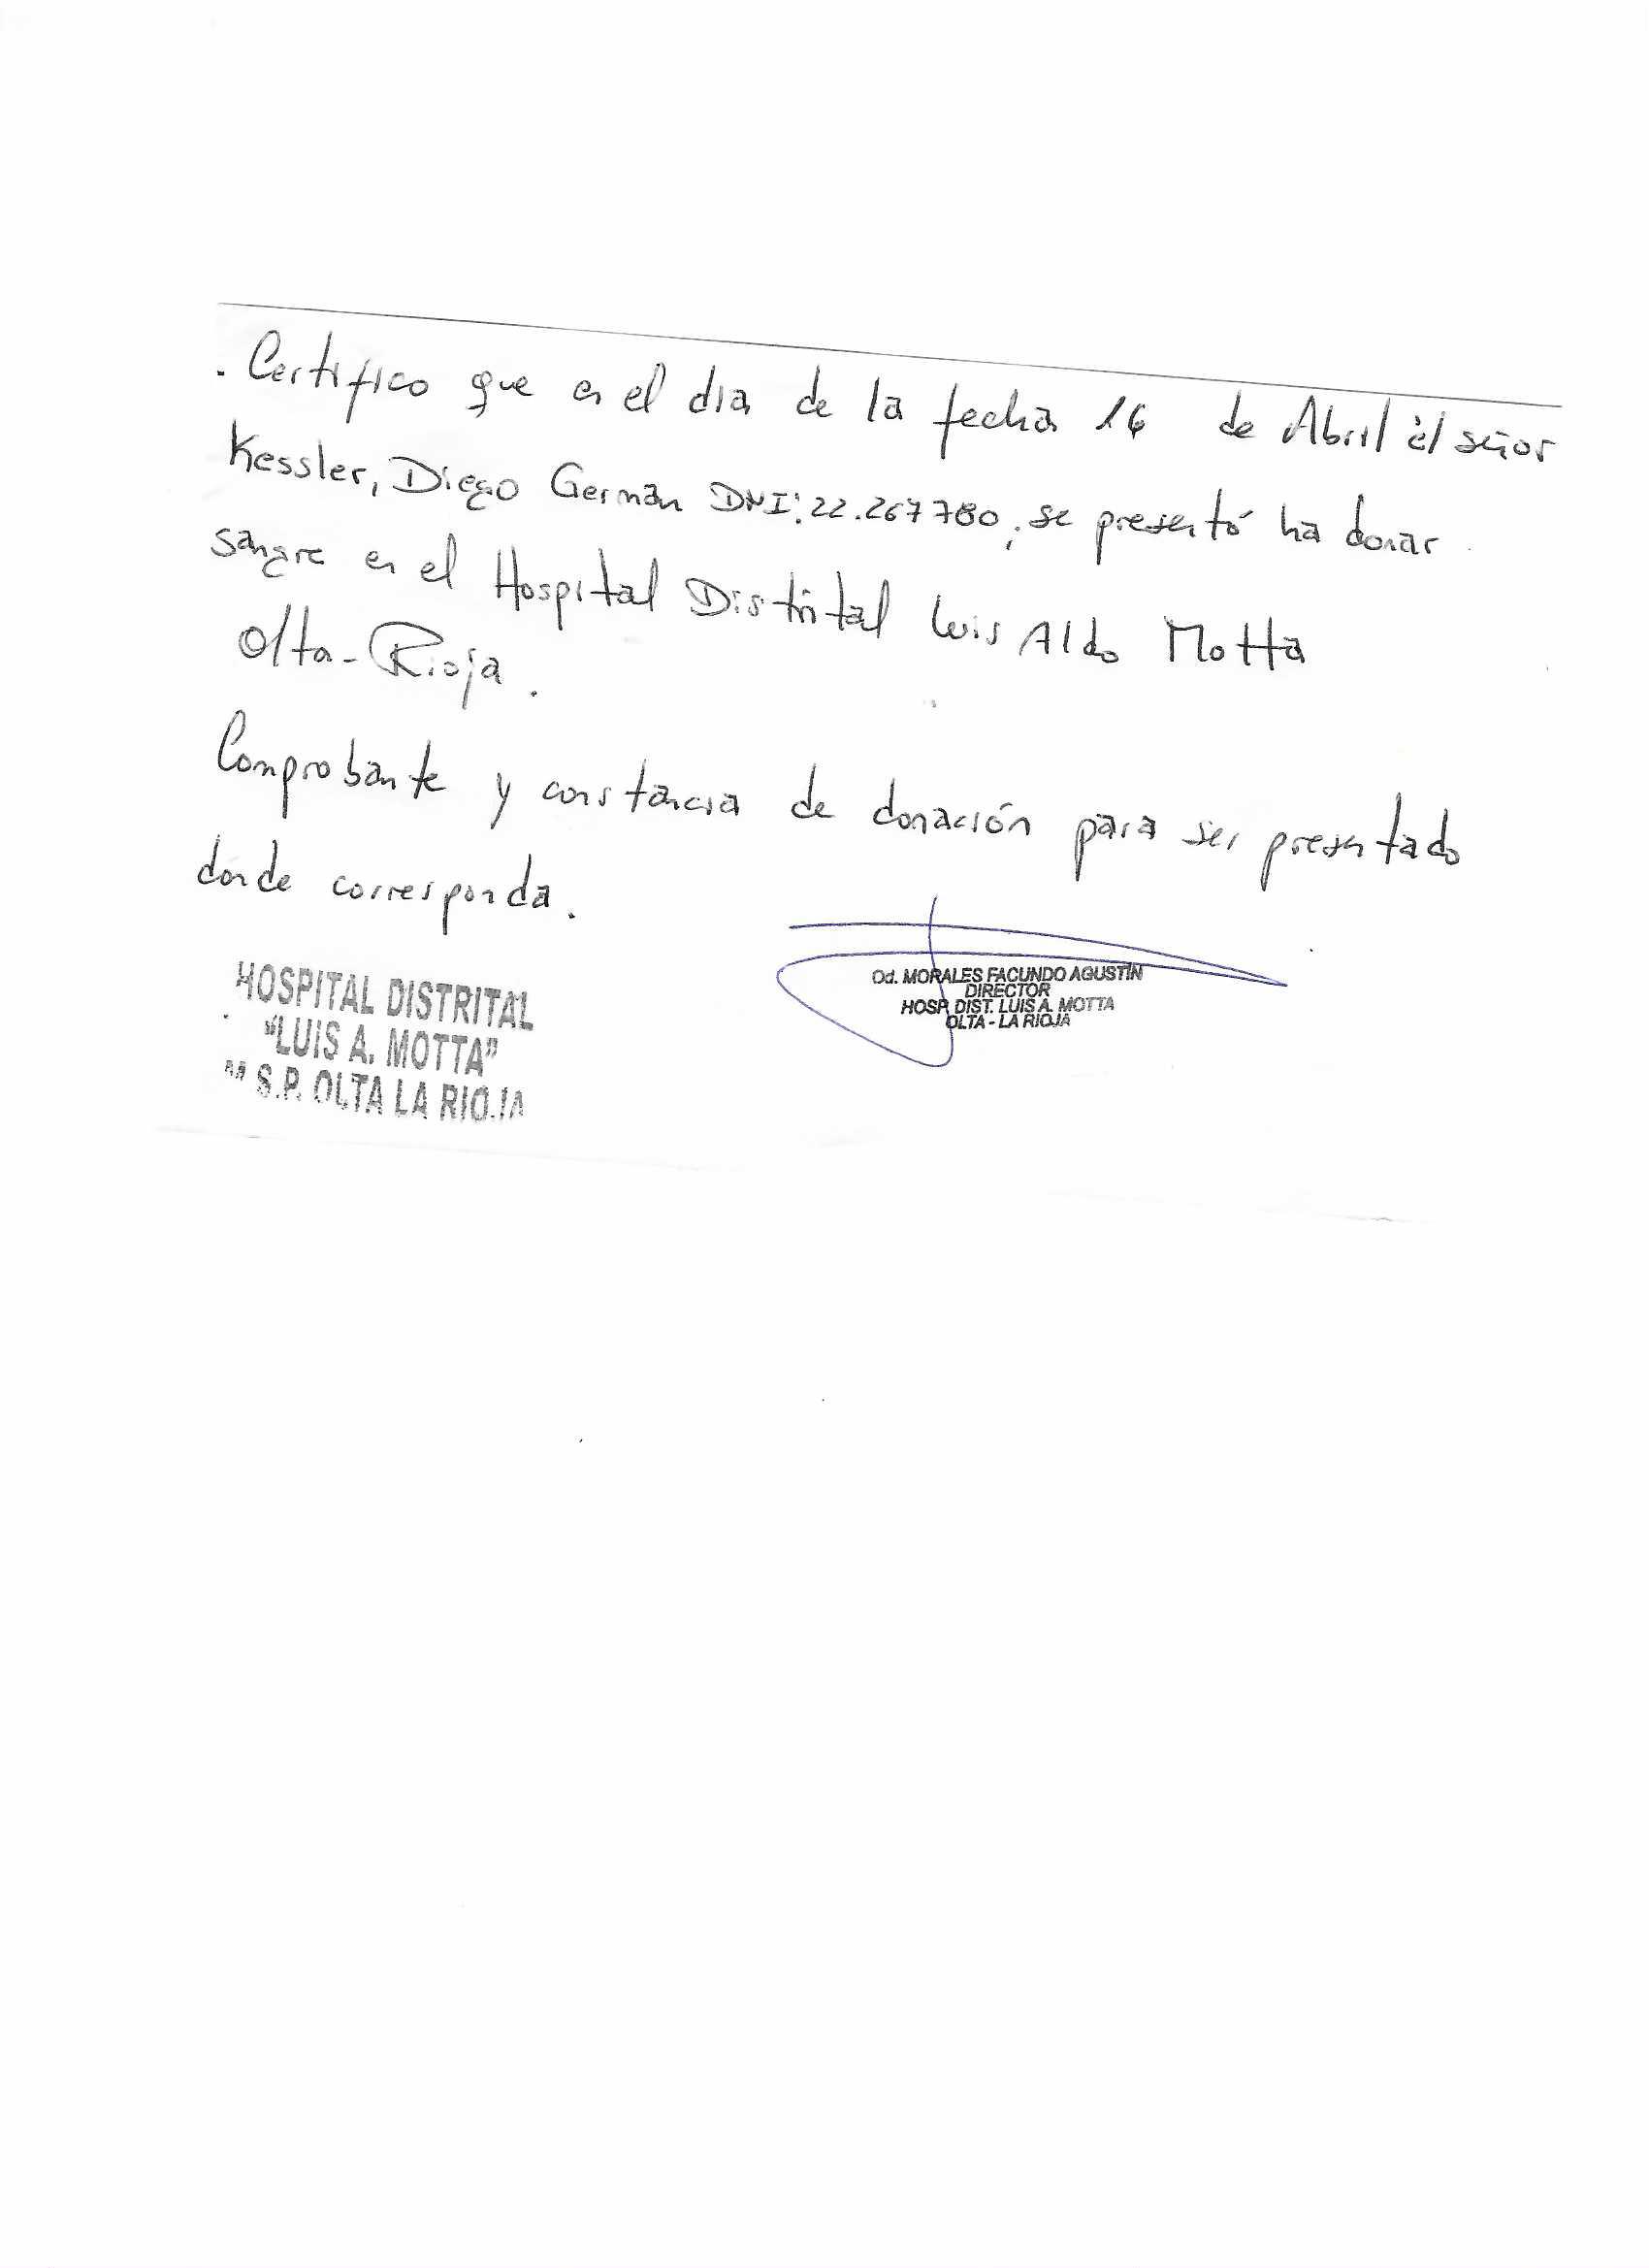 . Certifico que en el dia de la fecha 16 de Abril èl señor
Kessler, Diego Germán DNI: 22.267780, se presentó ha donar
sangre en el Hospital Distrital Luis Aldo Motta
Olta-Rioja.
Comprobante y constancia de donación para ser presentado
donde corresponda.
HOSPITAL DISTRITAL
"LUIS A. MOTTA"
M S.P. OLTA LA RIOJA
Od. MORALES FACUNDO AGUSTÍN
DIRECTOR
HOSP. DIST. LUIS A. MOTTA
OLTA - LA RIOJA